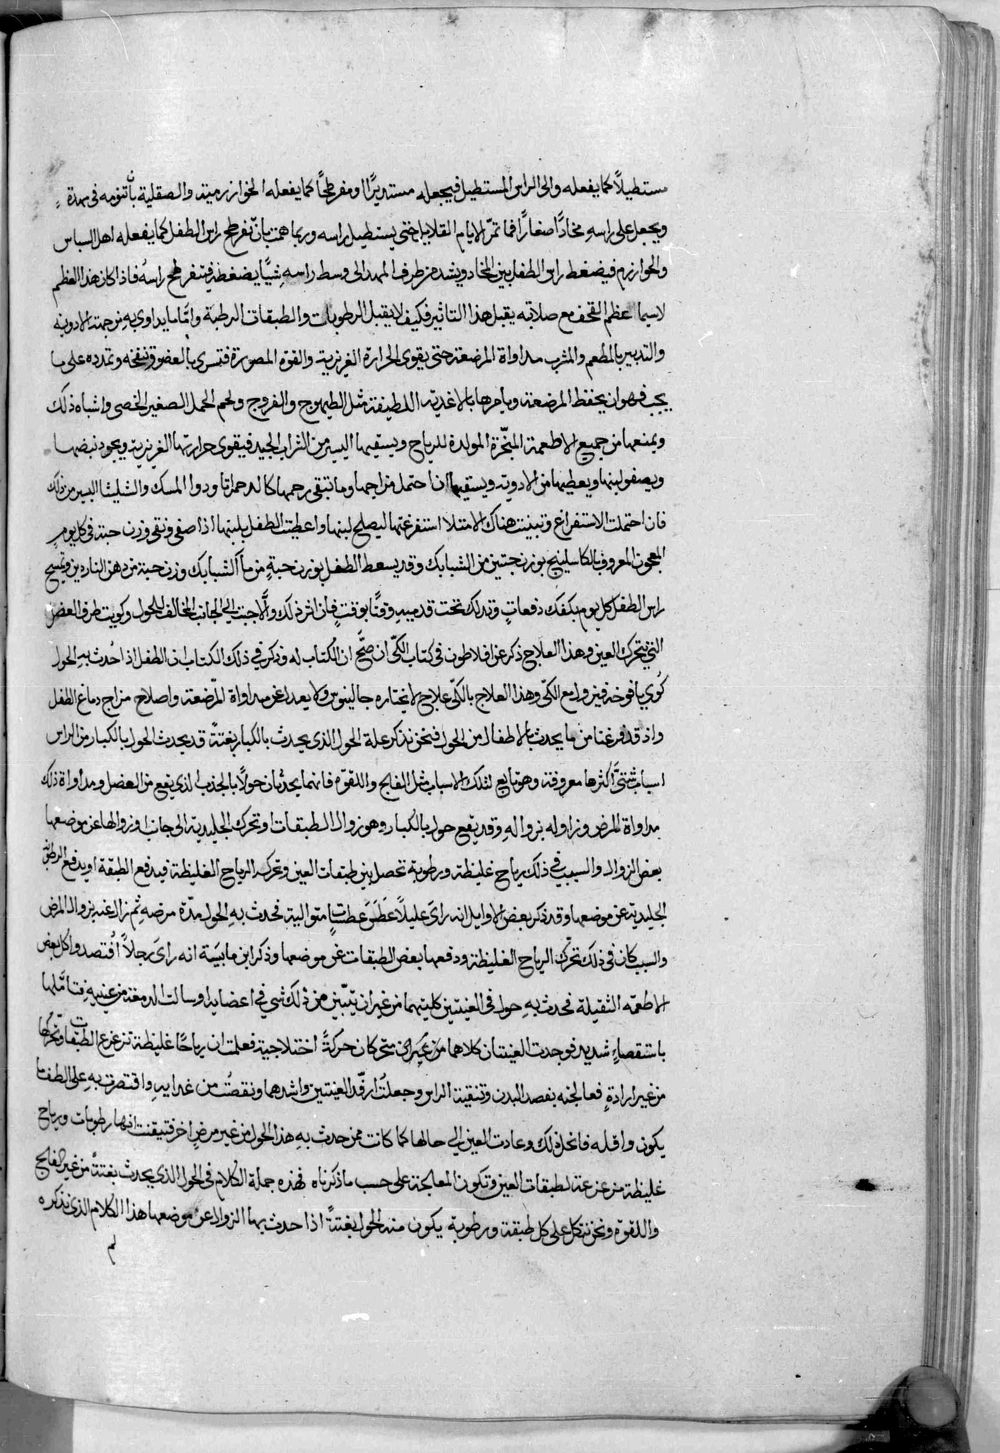 مستطيلاً كما يفعله والى الراس المستطيل فيجعله مستديرًا او مفرطحًا كما يفعله الخوارزمية والصقلية بأن تنومه فى مهدة
ويجعل على راسه مخادًا صغارًا فما تمرّ الايام القلايل حتى يستطيل راسه وربما همت بان تفرطح راس الطفل كما يفعله اهل السباس
والخوارزم فيضغط راس الطفل بين المخاد ويشد من طرف المهد الى وسط راسه شيًا يضغطه فيتفرطح راسه فاذا كان هذا العظم
لاسيما عظم القحف مع صلابته يقبل هذا التاثير فكيف لا يقبل الرطوبات والطبقات الرطبة وامّا ما يداوى به من جهة الادوية
والتدبير بالمطعم والمشرب مداواة المرضعة حتى يقوى الحرارة الغريزية والقوة المصورة فتسرى بالعضو وتنفخه وتمدده على ما
يجب فهو ان يحفظ المرضعة ويامرها بالاغذية اللطيفة مثل الطيهوج والفروج ولحم الحمل الصغير الخصى واشباه ذلك
ويمنعها من جميع الاطعمة المبخّرة المولدة للرياح ويسقيها اليسير من الشراب الجيد فيقوى حرارتها الغريزية ويجود نبضها
ويصفو لبنها ويعطيها من الادوية ويسقيها ان احتمل مزاجها وما تبقى رحمها كالدحمرثا ودوا المسك والشليثا اليسير من ذلك
فان احتملت الاستفراغ وتبينت هناك الامتلا استفرغتها ليصلح لبنها واعطيت الطفل بلبنها اذا صفى ونقى وزن حبة فى كل يوم
المعجون المعروف بالكاسلينج بوزن حبتين من الشبابك وقد يسعط الطفل بوزن حبةٍ من ماء الشبابك وزن حبة من دهن الناردين وتمسح
راس الطفل كل يوم بكفك دفعاتٍ وتدلك تحت قدميه وقتًا بوقت فان اثر ذلك والّا جيت الى الجانب المخالف للحول وكويت طرف العضل
التى تحرك العين وهذا العلاج ذكر عن افلاطون فى كتاب الكّى ان صحّ ان الكتاب له وذكر فى ذلك الكتاب ان الطفل اذا حدث به الحول
كوى يافوخه فيزول مع الكّى وهذا العلاج بالكّى علاج لا يختاره جالينوس ولا يعدل عن مداواة المرضعة واصلاح مزاج دماغ الطفل
واذ قد فرغنا من ما يحدث بالاطفال من الحول فنحن نذكر علة الحول الذى يحدث بالكبار بغتةً قد يحدث الحول بالكبار من الراس
اسباب شتىّ اكثرها معروفة وهو تابع لتلك الاسباب مثل الفالج واللقوه فانهما يحدثان حولاً بالجذب الذى يقع من العضل ومداواة ذلك
مداواة المرض وزاوله بزواله وقد يقع حول بالكبار وهو زوال الطبقات وتحرك الجليدية الى جانب او زوالها عن موضعها
بعض الزوال والسبب فى ذلك رياح غليظة ورطوبة تحصل بين طبقات العين وتحرك الرياح الغليظة فيدفع الطبقة او يدفع الرطوبة
الجليدية عن موضعها وقد ذكر بعض الاوايل انه راى عليلاً عطس عطسات متوالية فحدث به الحول مدّة مرضه ثم زال عنه بزوال المرض
والسبب كان فى ذلك تحرّك الرياح الغليظة ودفعها بعض الطبقات عن موضعها وذكر ابن مابسة انه راى رجلاً افتصد واكل بعض
الاطعمه الثقيلة فحدث به حول فى العينين كلتيهما من غير ان يتبين من ذلك شى فى اعضايه او سالت الدمعة من عينيه فتاملها
باستقصاءٍ شديد فوجدت العينتان كلاهما من غير ان تتحركان حركةً اختلاجية فعلمت ان رياحًا غليظة تزعزع الطبقات وتحركها
من غير ارادةٍ فعالجته بفصد البدن وتنقية الراس وجعلت ارفّد العينتين واشدهما ونقصت من غدايه واقتصرت به على الطف ما
يكون واقله فانحل ذلك وعادت العين الى حالها كما كانت فمن حدث به هذا الحول من غير مرضٍ اخر فتيقن انها رطوبات ورياح
غليظة مزعزعة لطبقات العين وتكون المعالجة على حسب ما ذكرناه فهذه جملة الكلام فى الحول الذى يحدث بغتةً من غير الفالج
واللقوه ونحن نتكلم على كل طبقة ورطوبة يكون منه الحول بغتةً اذا حدث بها الزوال عن موضعها هذا الكلام الذى نذكره